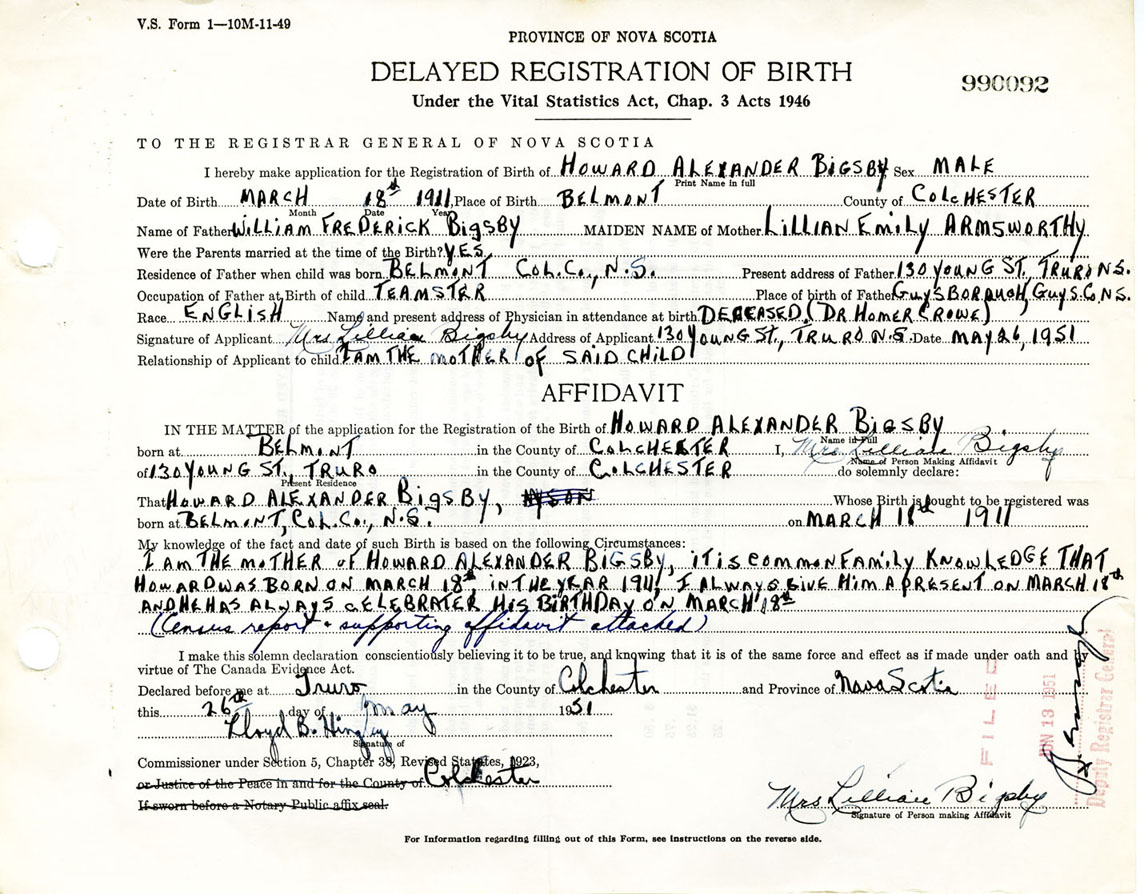 V.S. Form 1—10M-11-49
PROVINCE OF NOVA SCOTIA
DELAYED REGISTRATION OF BIRTH
990092
Under the Vital Statistics Act, Chap. 3 Acts 1946
TO THE REGISTRAR GENERAL OF NOVA SCOTIA
I hereby make application for the Registration of Birth of HOWARD ALEXANDER BIGSBY Sex MALE
Print Name in full
Date of Birth MARCH 18th 1911, Place of Birth BELMONT County of COLCHESTER
Month Date Year
Name of Father WILLIAM FREDERICK BIGSBY MAIDEN NAME of Mother LILLIAN EMILY ARMSWORTHY
Were the Parents married at the time of the Birth? YES
Residence of Father when child was born BELMONT COL. CO., N.S. Present address of Father 130 YOUNG ST, TRURO N.S.
Occupation of Father at Birth of child TEAMSTER Place of birth of Father GUYSBOROUGH, GUYS. CO. N.S.
Race ENGLISH Name and present address of Physician in attendance at birth DECEASED, (DR HOMER CROWE)
Signature of Applicant Mrs Lillian Bigsby Address of Applicant 130 YOUNG ST., TRURO N.S. Date MAY 26, 1951
Relationship of Applicant to child I AM THE MOTHER OF SAID CHILD
AFFIDAVIT
IN THE MATTER of the application for the Registration of the Birth of HOWARD ALEXANDER BIGSBY
Name in Full
born at BELMONT in the County of COLCHESTER I, Mrs Lillian Bigsby
Name of Person Making Affidavit
of 130 YOUNG ST., TRURO in the County of COLCHESTER do solemnly declare:
Present Residence
That HOWARD ALEXANDER BIGSBY, Whose Birth is sought to be registered was
born at BELMONT, COL. CO., N.S. on MARCH 18th 1911
My knowledge of the fact and date of such Birth is based on the following Circumstances:
I AM THE MOTHER OF HOWARD ALEXANDER BIGSBY, IT IS COMMON FAMILY KNOWLEDGE THAT
HOWARD WAS BORN ON MARCH 18th IN THE YEAR 1911, I ALWAYS GIVE HIM A PRESENT ON MARCH 18th
AND HE HAS ALWAYS CELEBRATER HIS BIRTHDAY ON MARCH 18th
(Census report & supporting affidavit attached)
I make this solemn declaration conscientiously believing it to be true, and knowing that it is of the same force and effect as if made under oath and by
virtue of The Canada Evidence Act.
Declared before me at Truro in the County of Colchester and Province of Nova Scotia
this 26th day of May 1951
Lloyd B. Hingley
Signature of
Commissioner under Section 5, Chapter 38, Revised Statutes, 1923,
or Justice of the Peace in and for the County of Colchester
If sworn before a Notary Public affix seal.
Mrs Lillian Bigsby
Signature of Person making Affidavit
FILED
JUN 13 1951
Deputy Registrar General
For Information regarding filling out of this Form, see instructions on the reverse side.